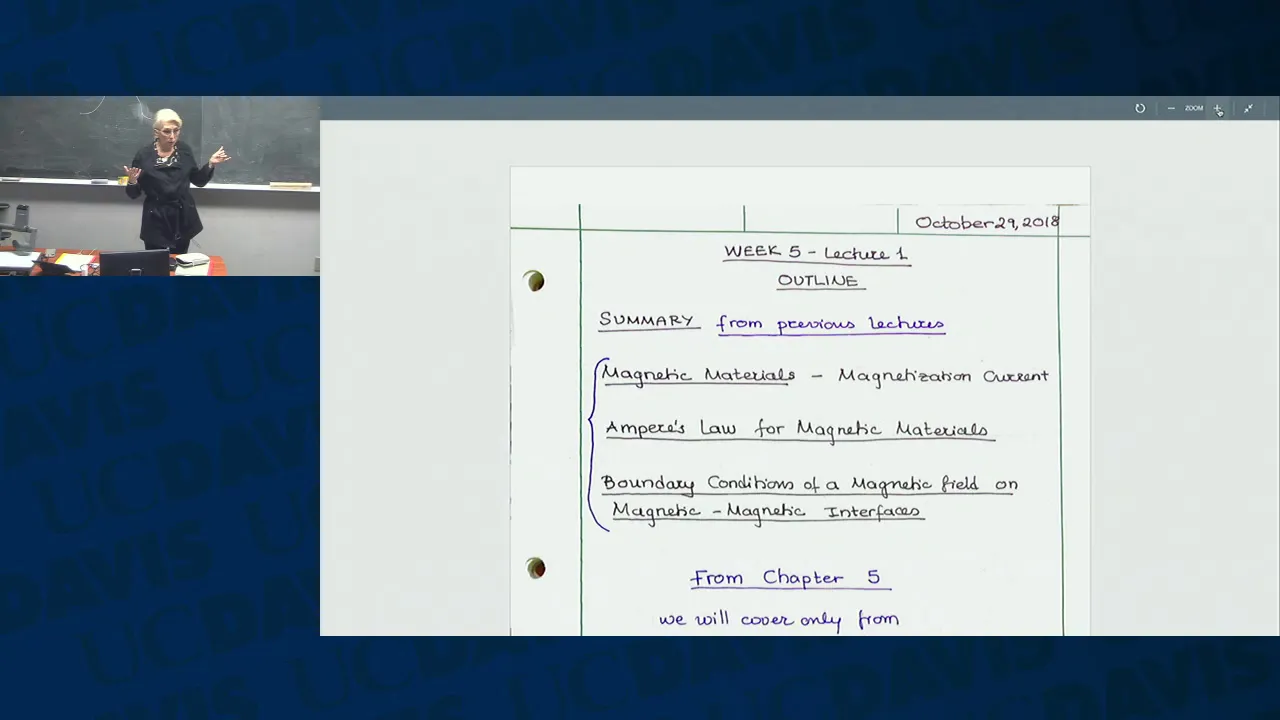 UCDAVIS
ZOOM
October 29, 2018
WEEK 5 - Lecture 1
OUTLINE
SUMMARY from previous lectures
Magnetic Materials - Magnetization Current
Ampere's Law for Magnetic Materials
Boundary Conditions of a Magnetic field on
Magnetic - Magnetic Interfaces
From Chapter 5
we will cover only from